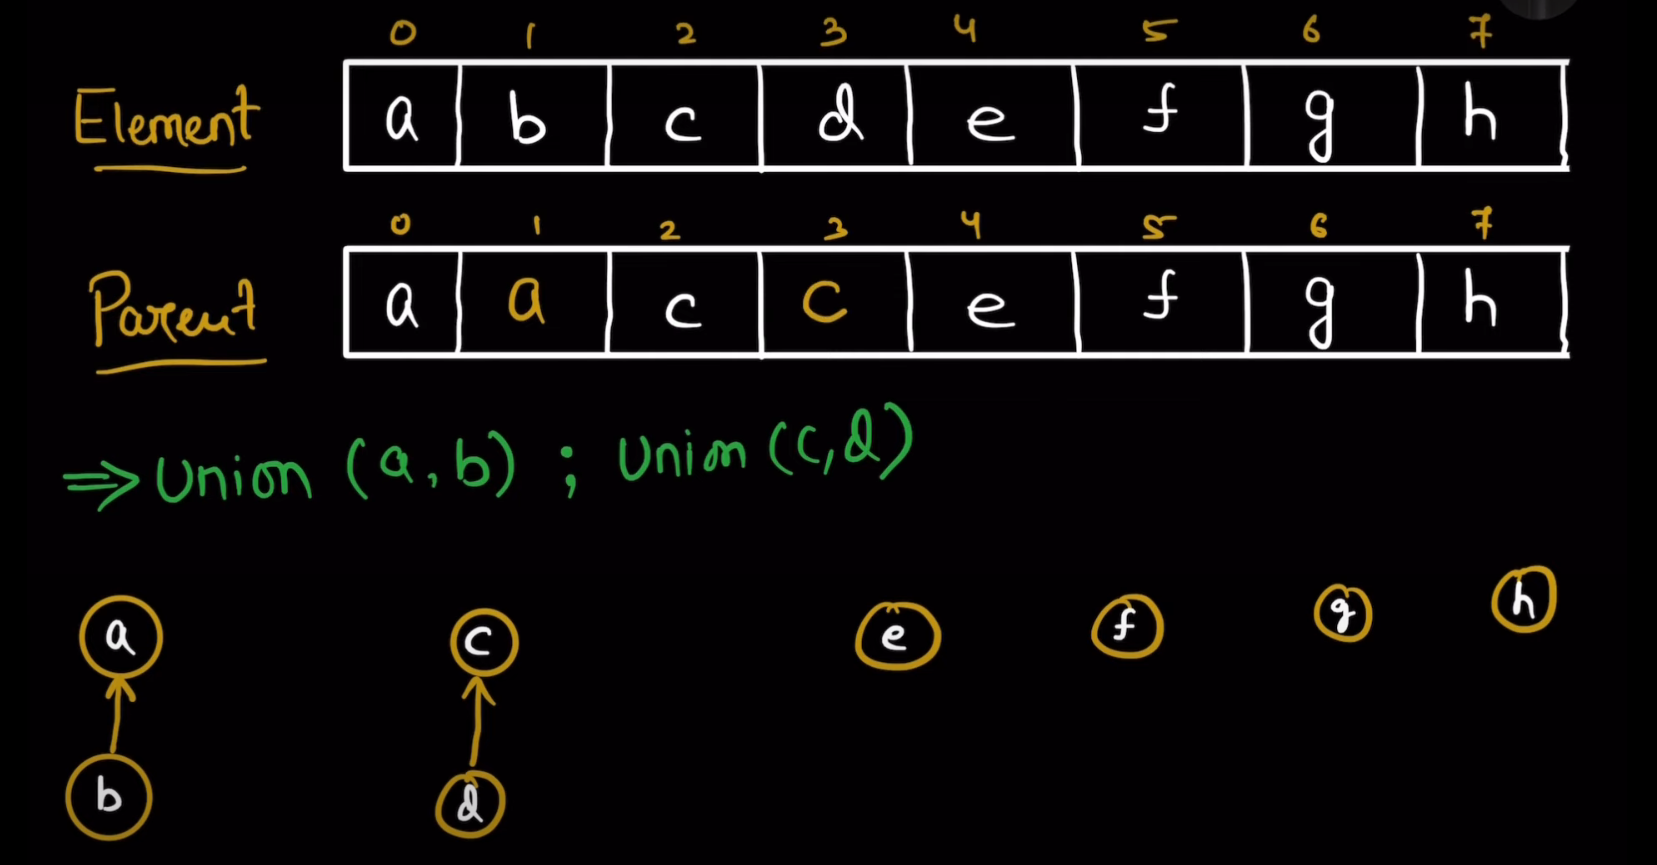 0 1 2 3 4 5 6 7
Element a b c d e f g h
0 1 2 3 4 5 6 7
Parent a a c c e f g h
⇒ Union (a, b) ; Union (c, d)
a c e f g h
b d